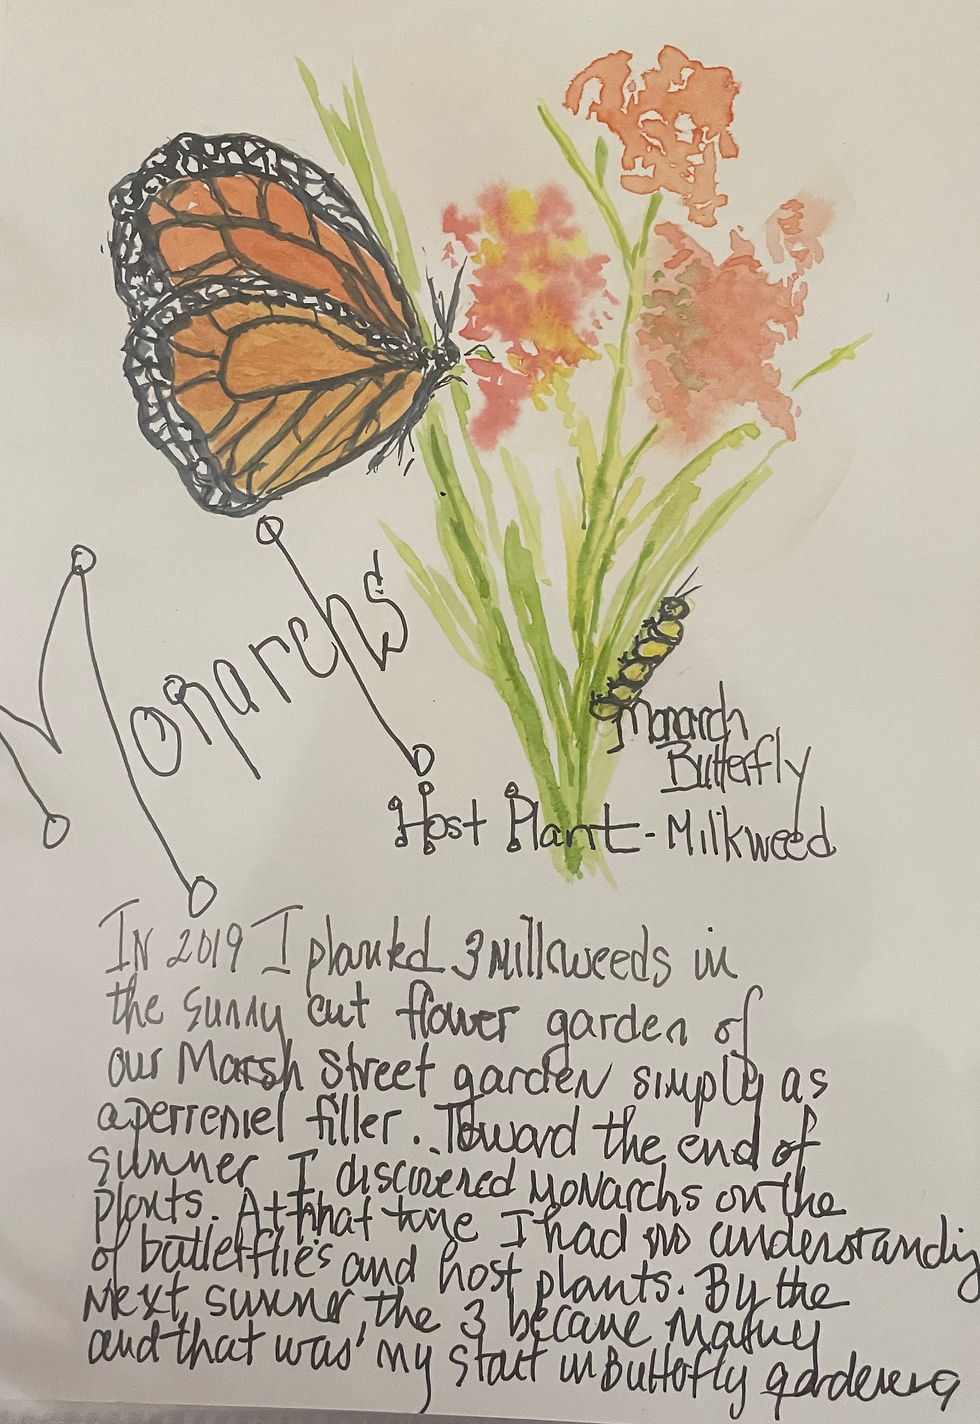 Monarchs
Monarch
Butterfly
Host Plant - Milkweed
In 2019 I planted 3 Milkweeds in
the sunny cut flower garden of
our Marsh Street garden simply as
a perreniel filler. Toward the end of
summer I discovered Monarchs on the
plants. At that time I had no understanding
of butterflies and host plants. By the
Next summer, the 3 became Many
and that was my start in Butterfly gardening